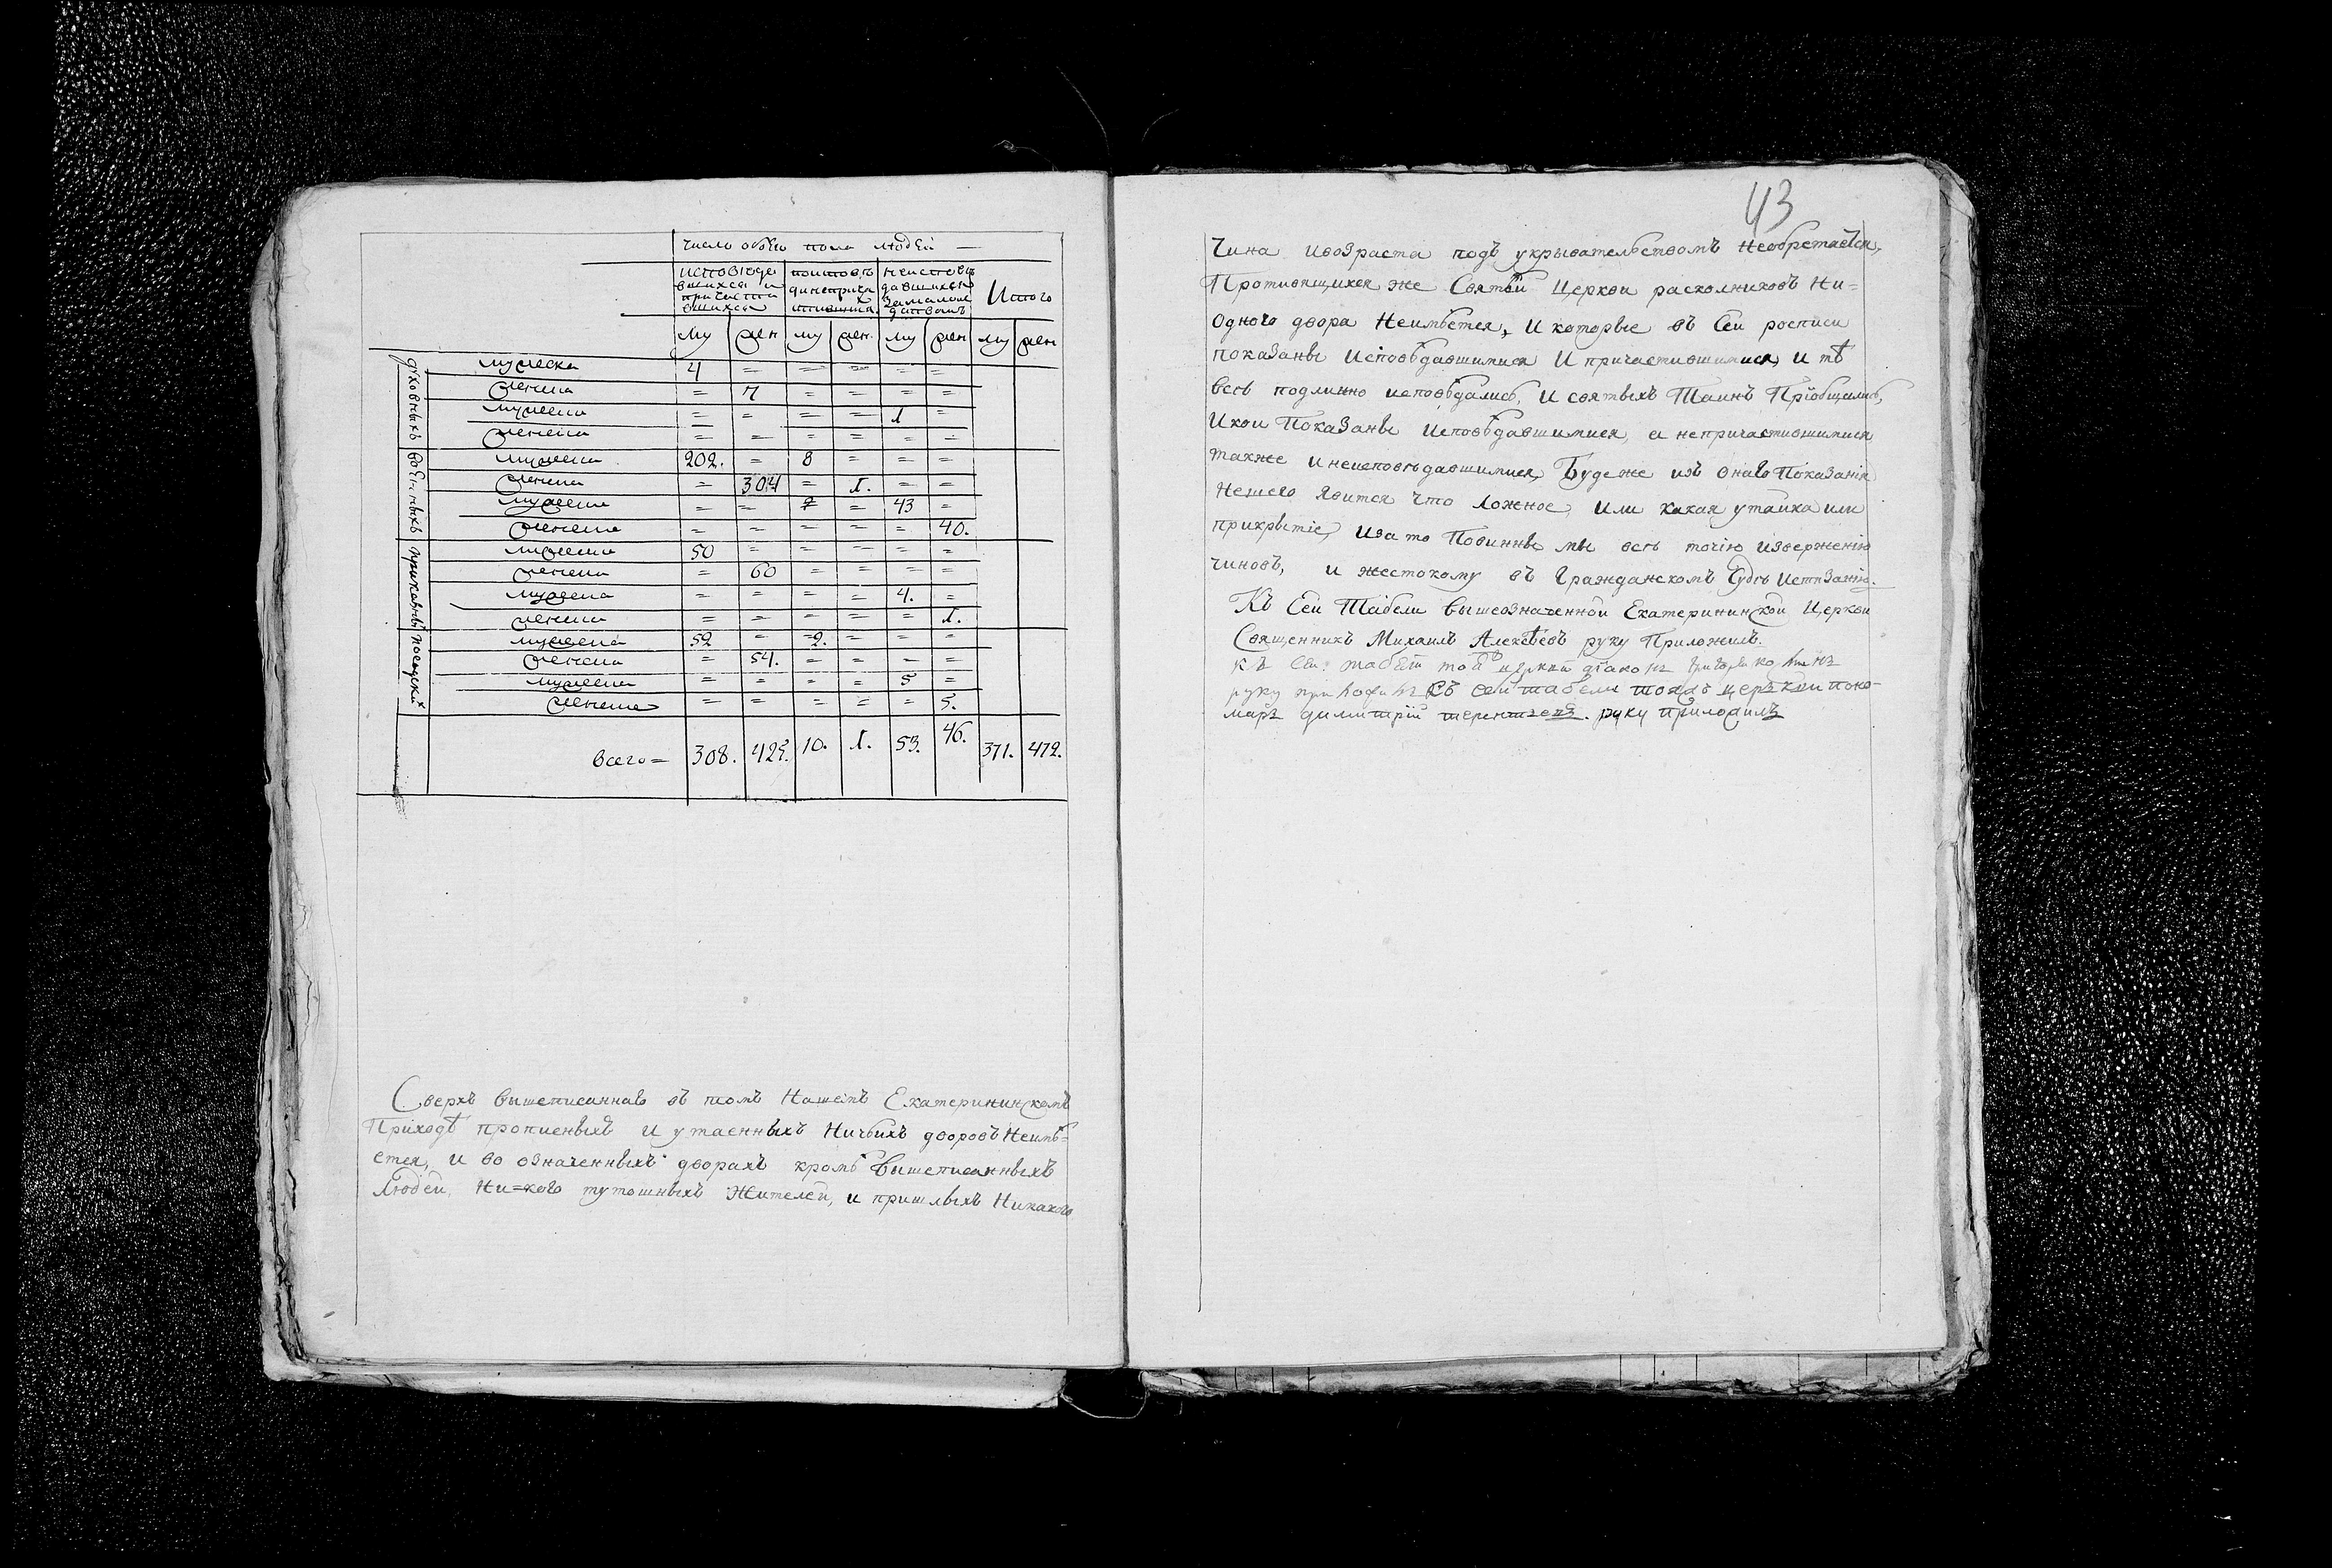 число обоего пола людей —
исповеда
вшихся и
причасти
вшихся
неисповѣ
давшихся
Замалол
Итого
му жен му жен. му жен му жен
духовныхъ
мужеска 4 = = = = =
женска = 7 = = = =
мужеска = = = = 1 =
женска = = = = = =
военныхъ
мужеска 202. = 8 = = =
женска = 304 = 1. = =
мужеска = = = = 43 =
женска = = = = = 40.
приказныхъ
мужеска 50 = = = = =
женска = 60 = = = =
мужеска = = = = 4. =
женска = = = = = 1.
посадскихъ
мужеска 52 = 2. = = =
женска = 54. = = = =
мужеска = = = = 5 =
женска = = = = = 5.
Всего = 308. 425. 10. 1. 53. 46. 371. 472.
Сверхъ вышеписаннаго въ томъ Нашемъ Екатерининскомъ
Приходѣ прописныхъ и утаенныхъ Ничьихъ дворовъ Неимѣ=
ется, и во означенныхъ дворахъ кромѣ вышеписанныхъ
Людей, Ни=кого тутошныхъ Жителей, и пришлыхъ Никакого
43
Чина ивозраста подъ укрывательствомъ Необретается,
Противящихся же Святой Церкви расколниковъ Ни=
Одного двора Неимѣется, И которые въ Сей росписи
показаны Исповѣдавшимися И причастившимися, и тѣ
всѣ подлинно исповѣдались, И святыхъ Таинъ Пріобщились,
Икои Показаны Исповѣдавшимися, а непричастившимися
также инеисповѣдавшимися, Будеже изъ онаго Показанія
Нашего Явится Что Ложное, или какая утайка или
прикрытіе, иза то Повинны мы всѣ точію изверженію
чиновъ, и жестокому въ Гражданскомъ Судѣ Истязанію.
Къ Сей Табели вышеозначенной Екатерининской Церкви
Священникъ Михаилъ Алексѣевъ руку Приложилъ.
къ сей табели той церкви діаконъ
руку приложилъ Къ сей табели тояжъ церькви поно-
марь димитрій терентьевъ. руку приложилъ